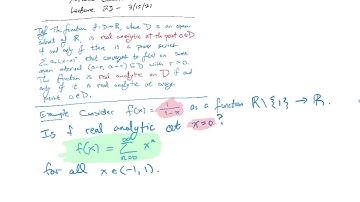 Lecture 25 - 3/15/21
Def The function f: D→R, where D is an open
subset of R, is real analytic at the point a∈D
if and only if there is a power series
that converges to f(x) on some
open interval (a-r, a+r) ⊆ D with r>0.
The function is real analytic on D if and
only if it is real analytic at every
point a∈D.
Example: Consider f(x) = 1/(1-x) as a function R\{1} → R.
Is f real analytic at x=0?
f(x) = ∑_{n=0}^{∞} x^n
for all x∈(-1,1).